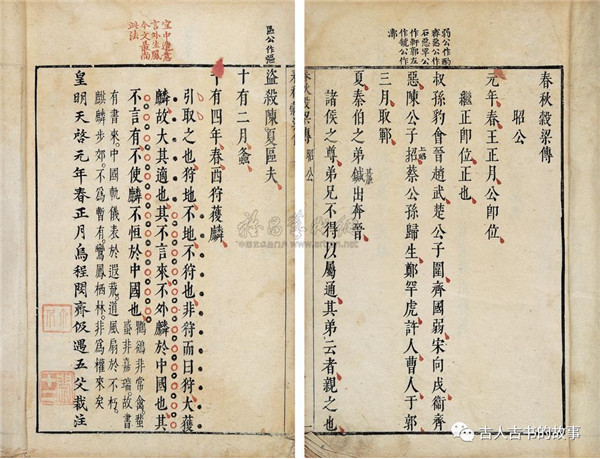 弱公作酌
齊惡公作
石惡罕公
作軒郭左
作虢公作
漷
春秋穀梁傳
昭公
元年春王正月公卽位
繼正卽位正也
叔孫豹會晉趙武楚公子圍齊國弱宋向戌衛齊
惡陳公子招蔡公孫歸生鄭罕虎許人曹人于郭
三月取鄆
夏秦伯之弟鍼出奔晉
諸侯之尊弟兄不得以屬通其弟云者親之也
春秋穀梁傳 昭公
區公作彄
盜殺陳夏區夫
十有二月螽
十有四年春西狩獲麟
引取之也狩地不地不狩也非狩而曰狩大獲
麟故大其適也其不言來不外麟於中國也其
不言有不使麟不恒於中國也
鸜鵒非常禽蜚
蜮非嘉瑞故書
有書來中國軌儀表於遐荒道風扇於不朽
麒麟步郊不爲暫有鸞鳳栖林非爲權來矣
皇明天啓元年春正月烏程閔齊伋遇五父裁注
古人古书的故事